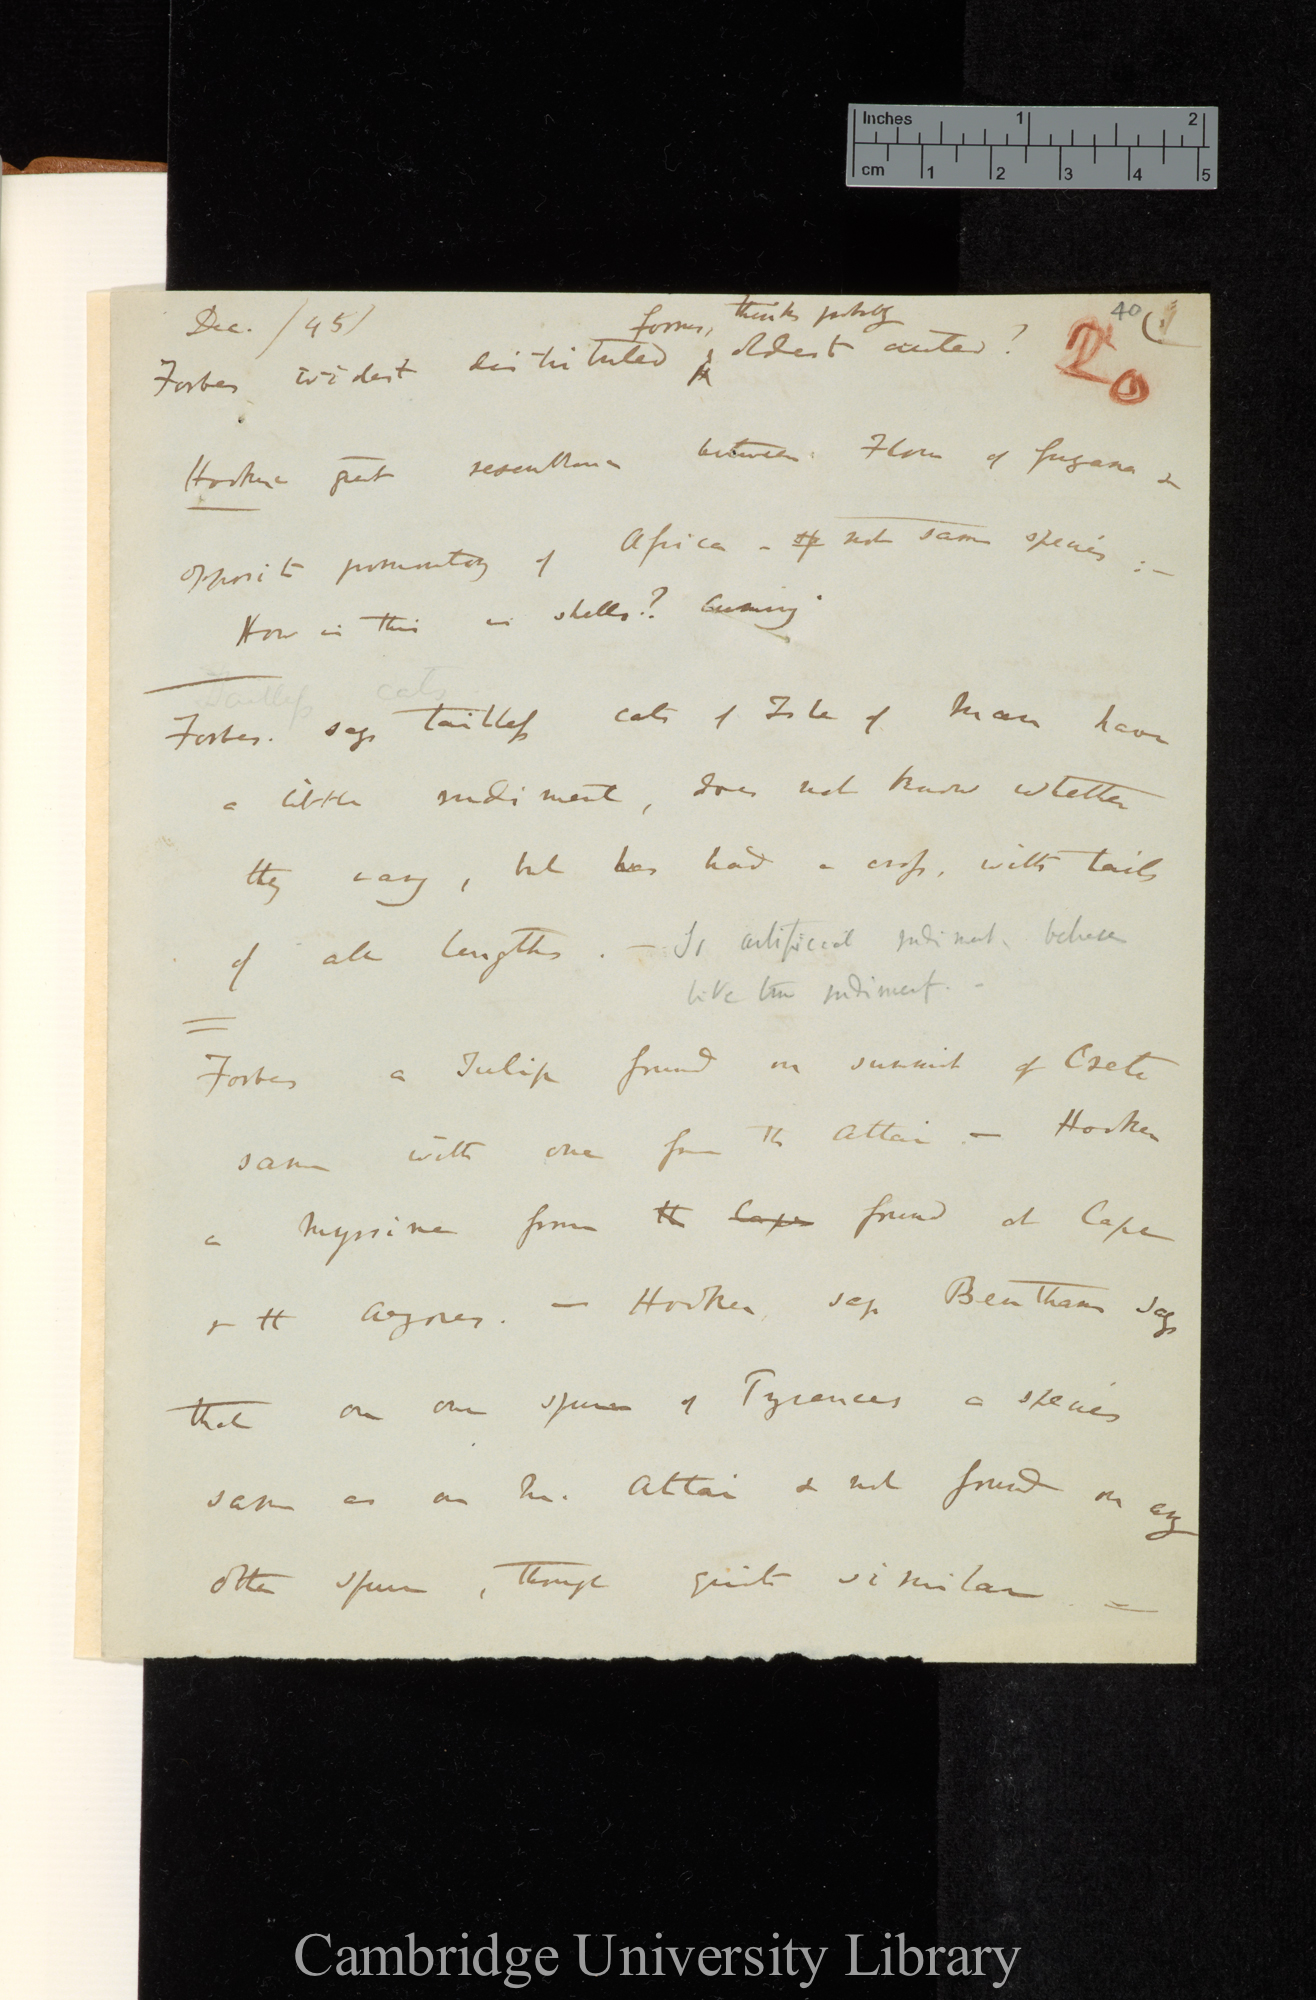 Inches 1 2
cm 1 2 3 4 5
40 (1
20
Dec. /45/
forms, thinks probably
Forbes widest distributed & oldest created?
Hooker great resemblance between Flora of Guyana &
opposite promontory of Africa - sp not same species :—
How is this in shells? Cuming
Tailless cats
Forbes. says tailless cats of Isle of Man have
a little rudiment, does not know whether
they vary, but has had a cross, with tails
of all lengths. — Is artificial rudiment behave
like true rudiment. —
Forbes a Tulip found on summit of Crete
same with one from the Altai — Hooker
a Myrsine from the Cape found at Cape
& the Azores. — Hooker, says Bentham says
that on one spur of Pyrenees a species
same as on M. Altai & not found on any
other spur, though quite similar —
Cambridge University Library